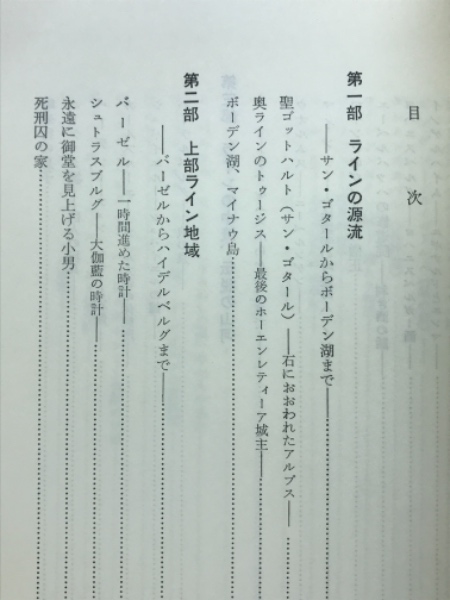 目次
第一部 ラインの源流
――サン・ゴタールからボーデン湖まで――
聖ゴットハルト(サン・ゴタール)――石におおわれたアルプス――
奥ラインのトゥージス――最後のホーエンレティーア城主――
ボーデン湖、マイナウ島
第二部 上部ライン地域
――バーゼルからハイデルベルグまで――
バーゼル――一時間進めた時計――
シュトラスブルグ――大伽藍の時計――
永遠に御堂を見上げる小男
死刑囚の家